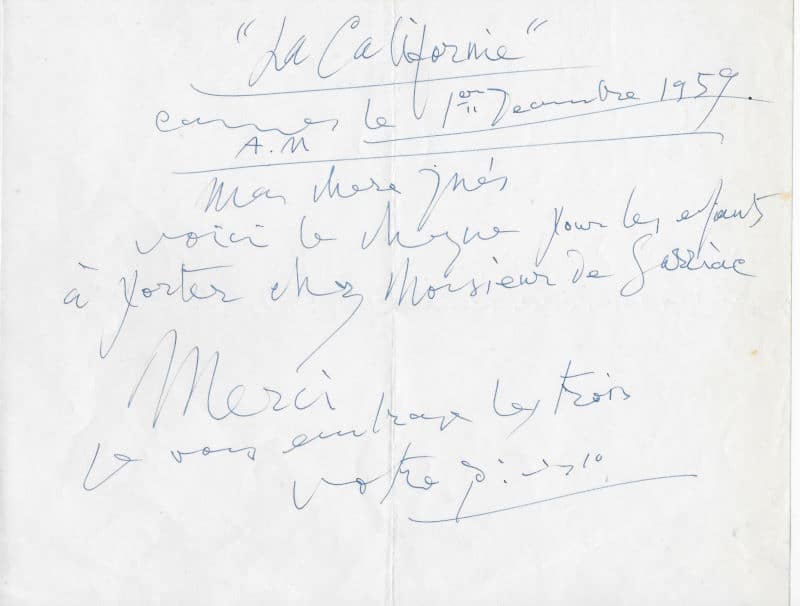 "La Californie"
Cannes le 1er Decembre 1959.
A.M
Ma chere Inés
voici le cheque pour les enfants
à porter chez Monsieur de Sarriac
Merci
je vous embrasse les trois
votre Picasso